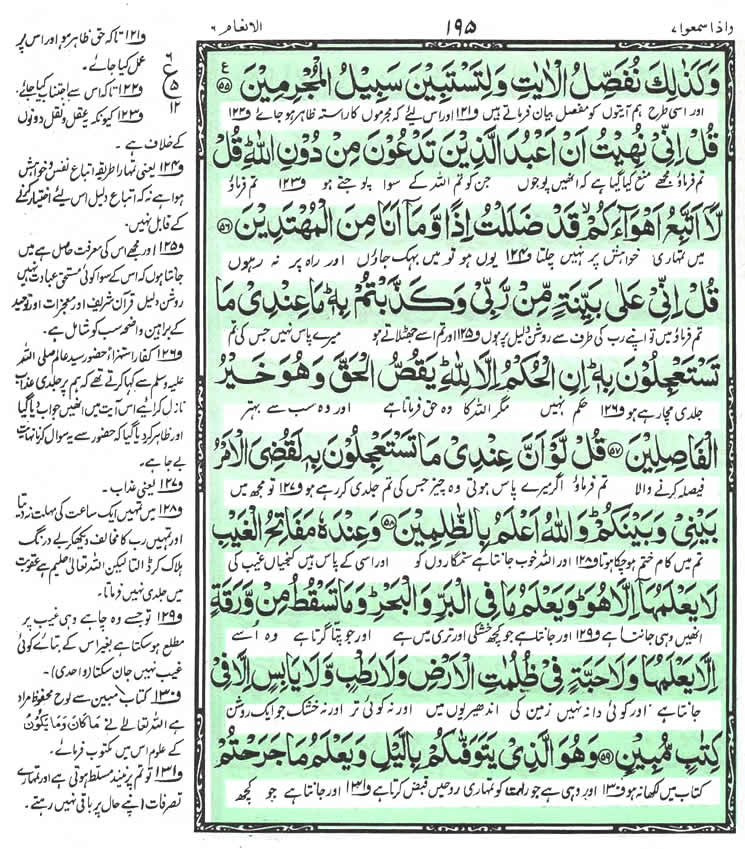 واذا سمعوا ۷
۱۹۵
الانعام ۶
وَكَذٰلِكَ نُفَصِّلُ الْاٰيٰتِ وَلِتَسْتَبِيْنَ سَبِيْلُ الْمُجْرِمِيْنَ ۵۵
اور اسی طرح ہم آیتوں کو مفصل بیان فرماتے ہیں و۱۲۱ اور اس لیے کہ مجرموں کا راستہ ظاہر ہو جائے و۱۲۲
قُلْ اِنِّيْ نُهِيْتُ اَنْ اَعْبُدَ الَّذِيْنَ تَدْعُوْنَ مِنْ دُوْنِ اللّٰهِ قُلْ
تم فرماؤ مجھے منع کیا گیا ہے کہ انھیں پوجوں جن کو تم اللہ کے سوا پوجتے ہو و۱۲۳ تم فرماؤ
لَّاۤ اَتَّبِعُ اَهْوَآءَكُمْ قَدْ ضَلَلْتُ اِذًا وَّمَاۤ اَنَا مِنَ الْمُهْتَدِيْنَ ۵۶
میں تمہاری خواہش پر نہیں چلتا و۱۲۴ یوں ہو تو میں بہک جاؤں اور راہ پر نہ رہوں
قُلْ اِنِّيْ عَلٰى بَيِّنَةٍ مِّنْ رَّبِّيْ وَكَذَّبْتُمْ بِهٖ مَا عِنْدِيْ مَا
تم فرماؤ میں تو اپنے رب کی طرف سے روشن دلیل پر ہوں و۱۲۵ اور تم اسے جھٹلاتے ہو میرے پاس نہیں جس کی تم
تَسْتَعْجِلُوْنَ بِهٖ اِنِ الْحُكْمُ اِلَّا لِلّٰهِ يَقُصُّ الْحَقَّ وَهُوَ خَيْرُ
جلدی مچا رہے ہو و۱۲۶ حکم نہیں مگر اللہ کا وہ حق فرماتا ہے اور وہ سب سے بہتر
الْفَاصِلِيْنَ ۵۷ قُلْ لَّوْ اَنَّ عِنْدِيْ مَا تَسْتَعْجِلُوْنَ بِهٖ لَقُضِيَ الْاَمْرُ
فیصلہ کرنے والا تم فرماؤ اگر میرے پاس ہوتی وہ چیز جس کی تم جلدی کر رہے ہو و۱۲۷ تو مجھ میں
بَيْنِيْ وَبَيْنَكُمْ وَاللّٰهُ اَعْلَمُ بِالظّٰلِمِيْنَ ۵۸ وَعِنْدَهٗ مَفَاتِحُ الْغَيْبِ
تم میں کام ختم ہو چکا ہوتا و۱۲۸ اور اللہ خوب جانتا ہے ستمگاروں کو اور اسی کے پاس ہیں کنجیاں غیب کی
لَا يَعْلَمُهَاۤ اِلَّا هُوَ وَيَعْلَمُ مَا فِي الْبَرِّ وَالْبَحْرِ وَمَا تَسْقُطُ مِنْ وَّرَقَةٍ
انھیں وہی جانتا ہے و۱۲۹ اور جانتا ہے جو کچھ خشکی اور تری میں ہے اور جو پتا گرتا ہے وہ اُسے
اِلَّا يَعْلَمُهَا وَلَا حَبَّةٍ فِيْ ظُلُمٰتِ الْاَرْضِ وَلَا رَطْبٍ وَّلَا يَابِسٍ اِلَّا فِيْ
جانتا ہے اور کوئی دانہ نہیں زمین کی اندھیریوں میں اور نہ کوئی تر اور نہ خشک جو ایک روشن
كِتٰبٍ مُّبِيْنٍ ۵۹ وَهُوَ الَّذِيْ يَتَوَفّٰىكُمْ بِالَّيْلِ وَيَعْلَمُ مَا جَرَحْتُمْ
کتاب میں لکھا نہ ہو و۱۳۰ اور وہی ہے جو رات کو تمہاری روحیں قبض کرتا ہے و۱۳۱ اور جانتا ہے جو کچھ
و۱۲۱ تاکہ حق ظاہر ہو اور اس پر
عمل کیا جائے۔
و۱۲۲ تاکہ اس سے اجتناب کیا جائے۔
و۱۲۳ کیونکہ یہ عقل و نقل دونوں
کے خلاف ہے۔
و۱۲۴ یعنی تمہارا طریقہ اتباع نفس و خواہش
ہوا ہے نہ کہ اتباع دلیل اس لیے اختیار کرنے
کے قابل نہیں۔
و۱۲۵ اور مجھے اس کی معرفت حاصل ہے میں
جانتا ہوں کہ اس کے سوا کوئی مستحق عبادت نہیں
روشن دلیل قرآن شریف اور معجزات اور توحید
کے براہین واضحہ سب کو شامل ہے۔
و۱۲۶ کفار استہزاءً حضور سید عالم صلی اللہ
علیہ وسلم سے کہا کرتے تھے کہ ہم پر جلدی عذاب
نازل کرائیے اس آیت میں انھیں جواب دیا گیا
اور ظاہر کر دیا گیا کہ حضور سے یہ سوال کرنا نہایت
بے جا ہے۔
و۱۲۷ یعنی عذاب۔
و۱۲۸ میں تمہیں ایک ساعت کی مہلت نہ دیتا
اور تمہیں رب کا مخالف دیکھ کر بے درنگ
ہلاک کر ڈالتا لیکن اللہ تعالیٰ حلیم ہے عقوبت
میں جلدی نہیں فرماتا۔
و۱۲۹ تو جسے وہ چاہے وہی غیب پر
مطلع ہو سکتا ہے بغیر اس کے بتائے کوئی
غیب نہیں جان سکتا (واحدی)۔
و۱۳۰ کتاب مبین سے لوح محفوظ مراد
ہے اللہ تعالیٰ نے مَا کَانَ وَمَا یَکُوْنُ
کے علوم اس میں مکتوب فرمائے۔
و۱۳۱ تو تم پر نیند مسلط ہوتی ہے اور تمہارے
تصرفات اپنے حال پر باقی نہیں رہتے۔
۶
ع
۵
۱۲